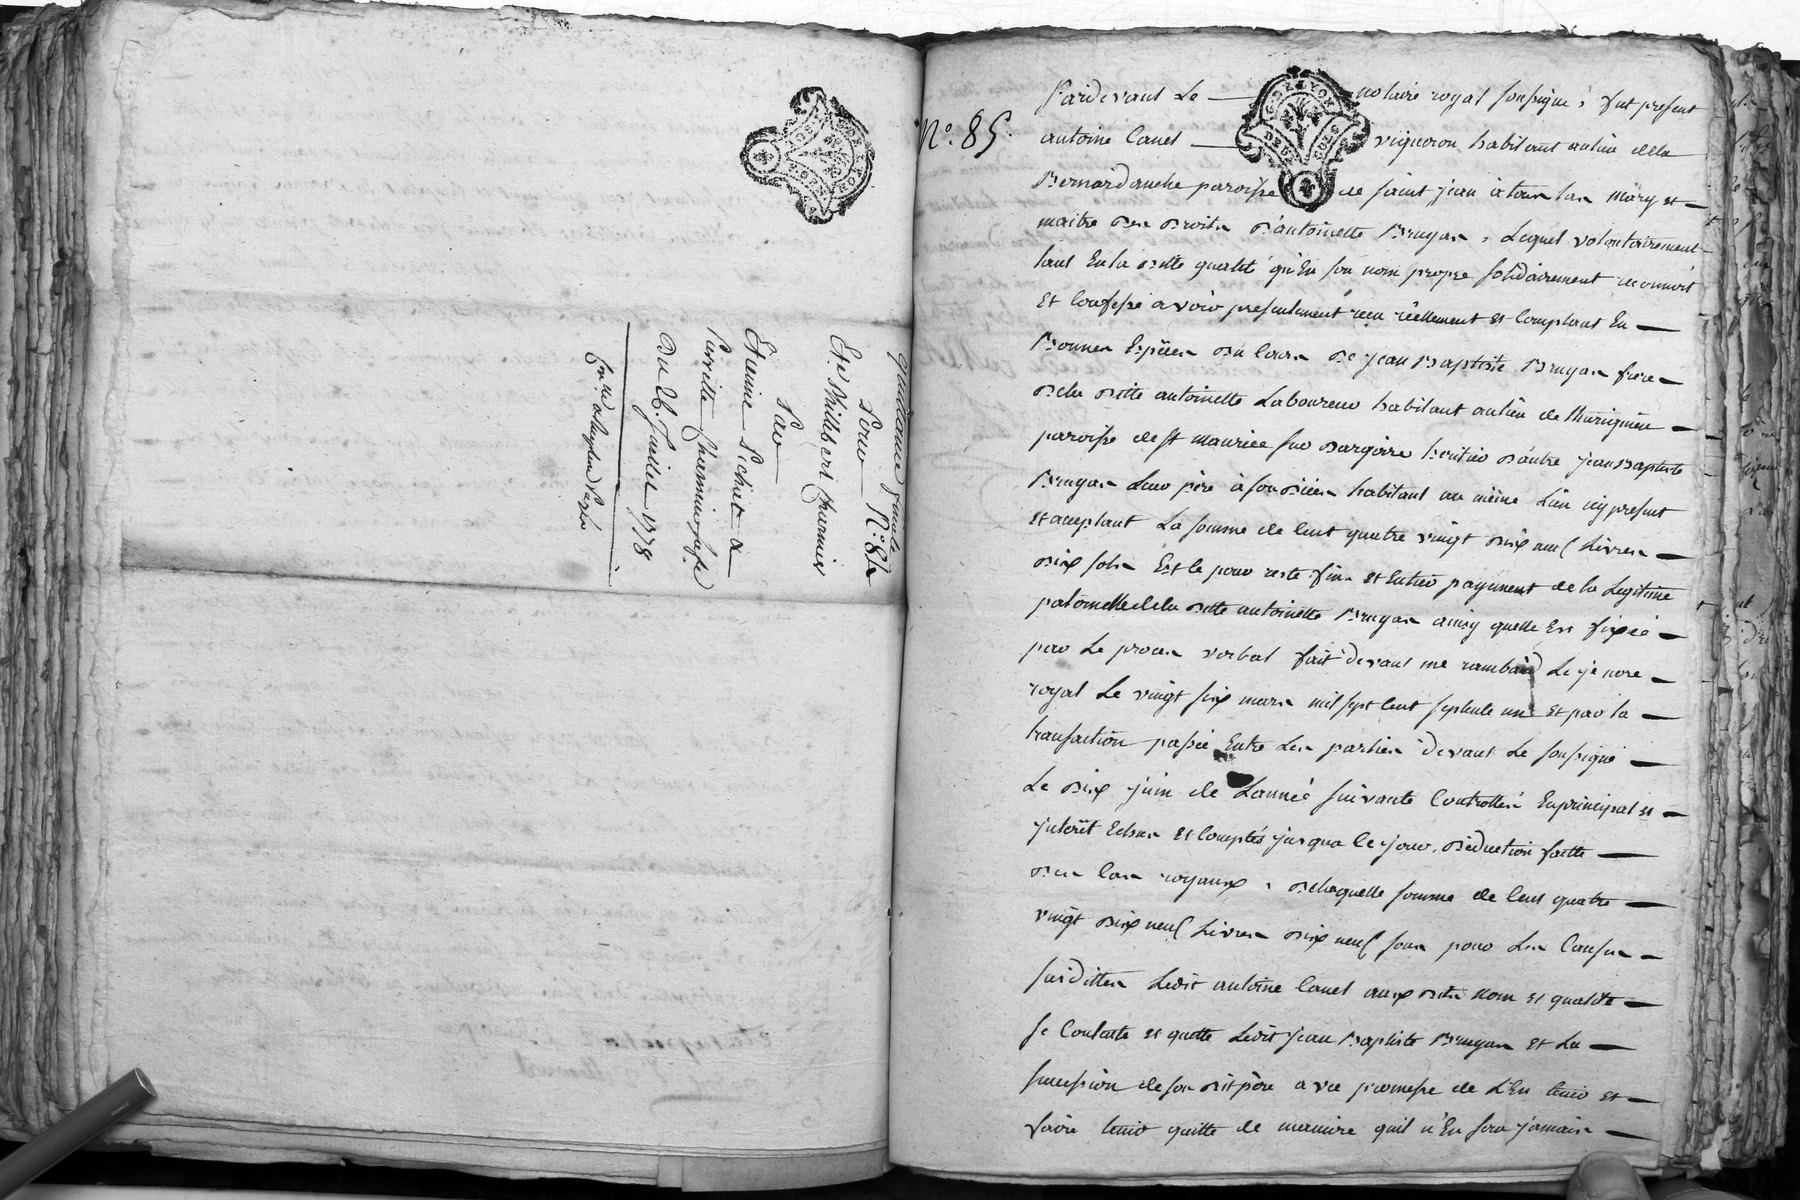 quittance
pour N.° 84
Et.e Philibert charmier
Par
Etienne Pichat &
Perrette charmier sa f.e
Du 26. Juillet 1778
N.° 85.
Pardevant Le notaire royal soussigné, fut present
antoine Canel vigneron habitant au lieu dela
Bernardanche paroisse de saint jean à toulas mary et
maitre des droits d'antoinette Bruyas, Lequel volontairement
tant En la ditte qualité qu'En son nom propre solidairement reconnoit
Et Confesse avoir presentement reçu réellement et Comptant En
Bonnes Espèces du Cours De jean Baptiste Bruyas frère
Dela Ditte antoinette Laboureur habitant au lieu de
paroisse de st maurice sur dargoire heritier d'autre jean Baptiste
Bruyas Leur père à son décés habitant au même Lieu icy present
et acceptant La somme de Cent quatre vingt dix neuf Livres
dix sols Et Ce pour reste fin et Entier payement de la Legitime
paternelle dela ditte antoinette Bruyas ainsy quelle Est fixée
par Le procès verbal fait devant me rambaud Le je nore
royal Le vingt six mars mil sept Cent septente un Et par la
transaction passée Entre Les parties devant Le soussigné
Le dix juin de L'année suivante Controllés En principal et
jnterêt Echus Et Comptés jusqua Ce jour, déduction faitte
des Cas royaux, delaquelle somme de Cent quatre
vingt dix neuf Livres dix neuf sous pour Les Causes
susdittes Ledit antoine Canel aux dits nom et qualité
se Contente et quitte Ledit jean Baptiste Bruyas et La
succession de son dit père avec promesse de L'En tenir et
faire tenir quitte de maniere quil n'En sera jamais